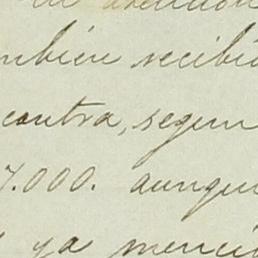 mbien recibi
contra, segun
7.000. aunqu
ya menci